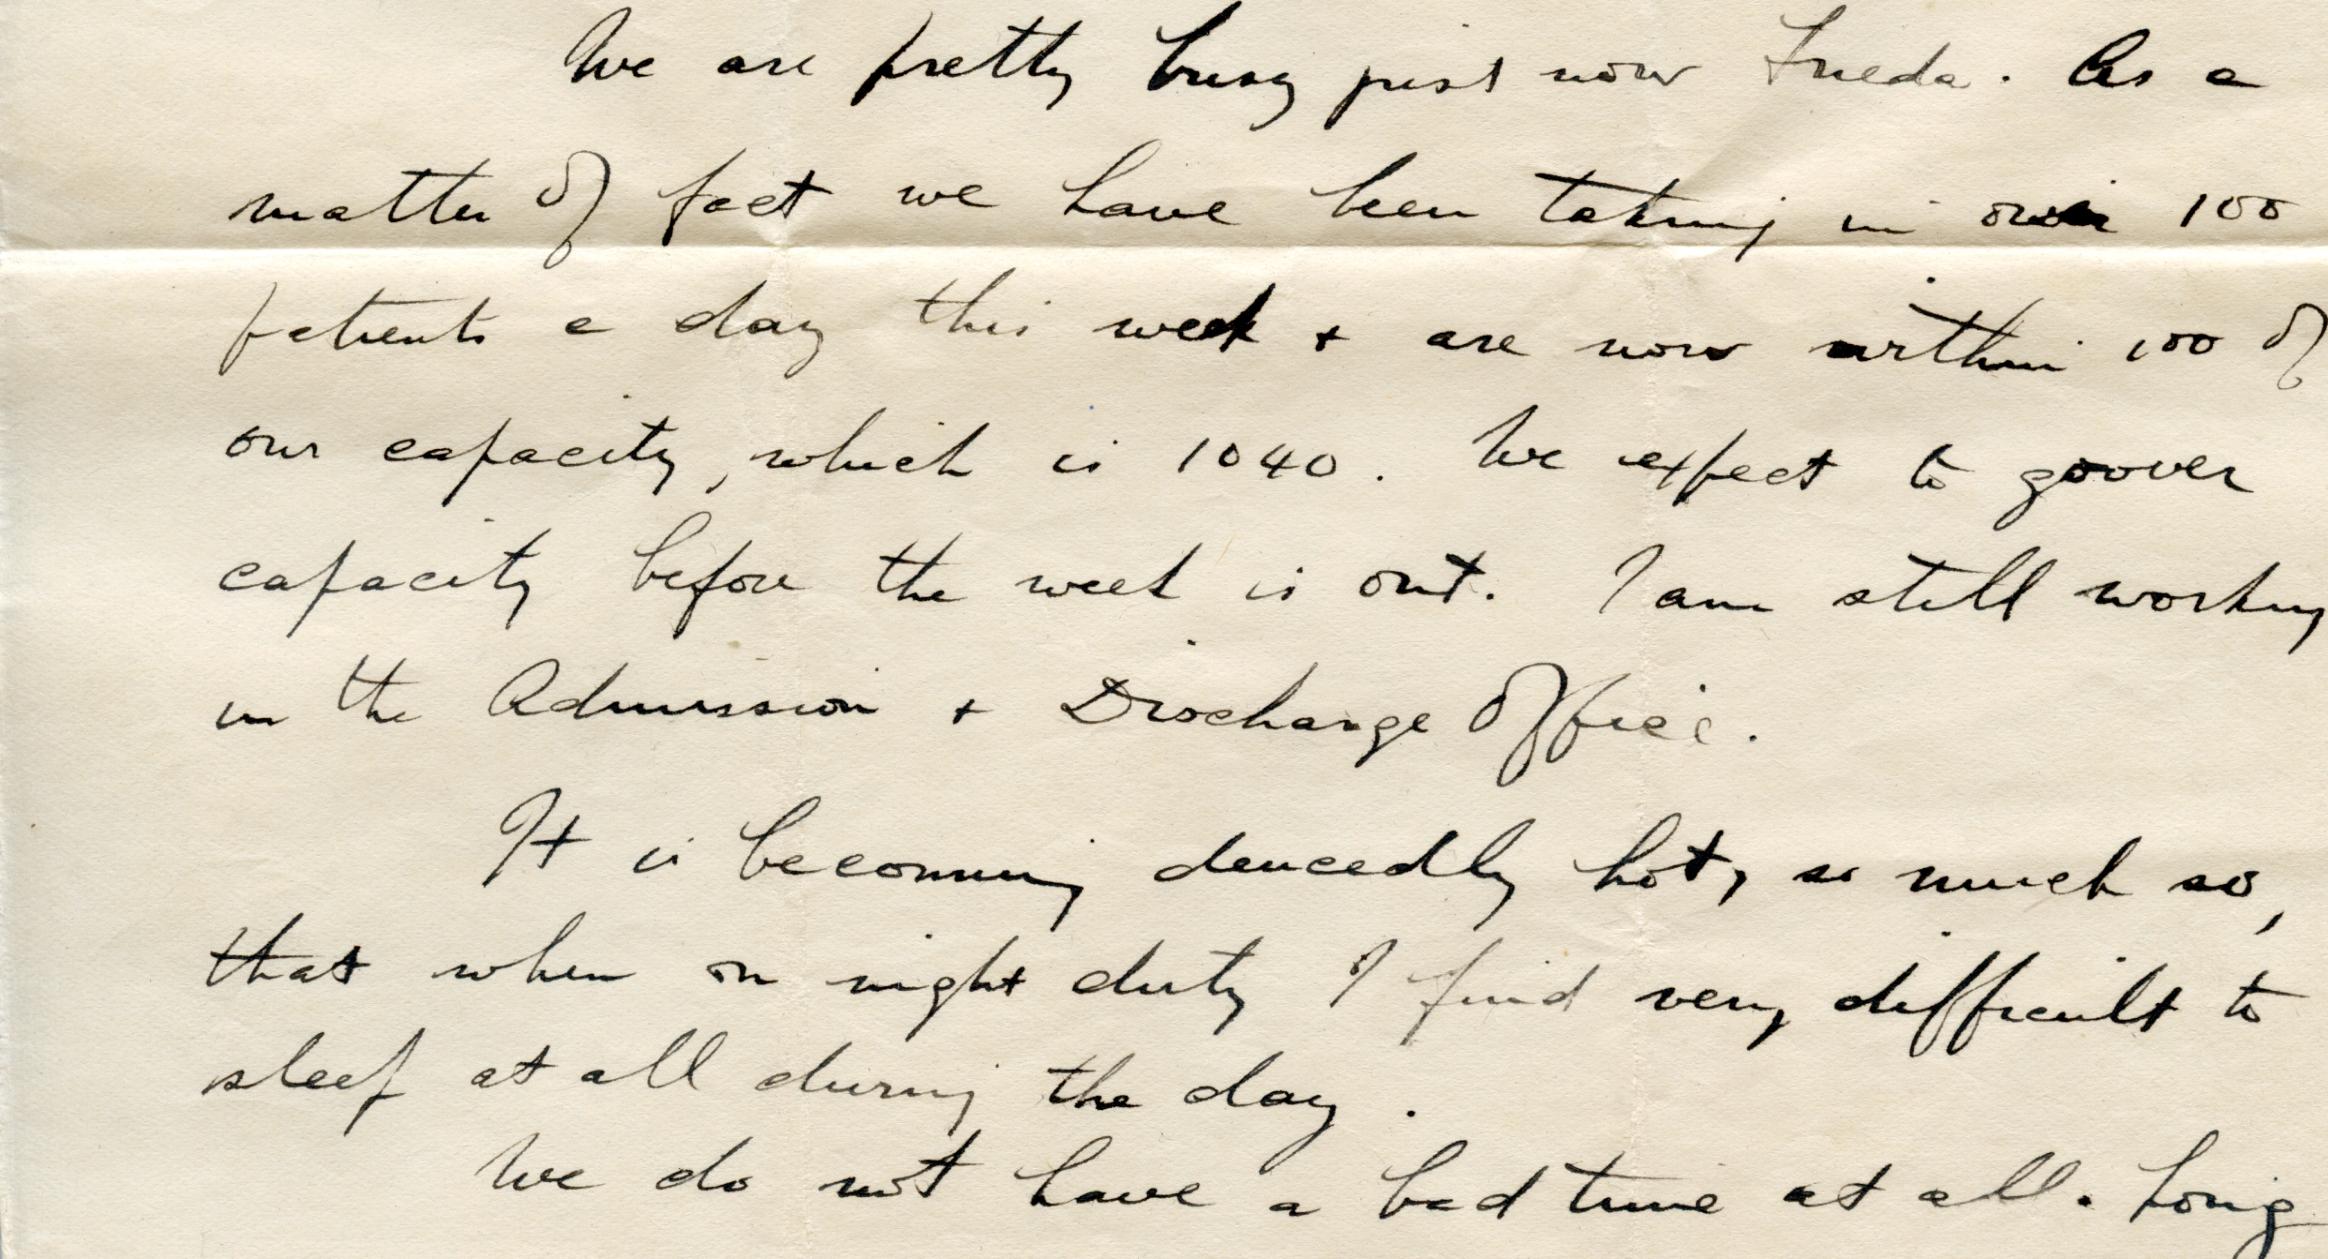 We are pretty busy just now Frieda. As a
matter of fact we have been taking in over 100
patients a day this week + are now within 100 of
our capacity, which is 1040. We expect to go over
capacity before the week is out. I am still working
in the Admission + Discharge Office.
It is becoming deucedly hot, so much so,
that when on night duty I find very difficult to
sleep at all during the day.
We do not have a bad time at all. Long